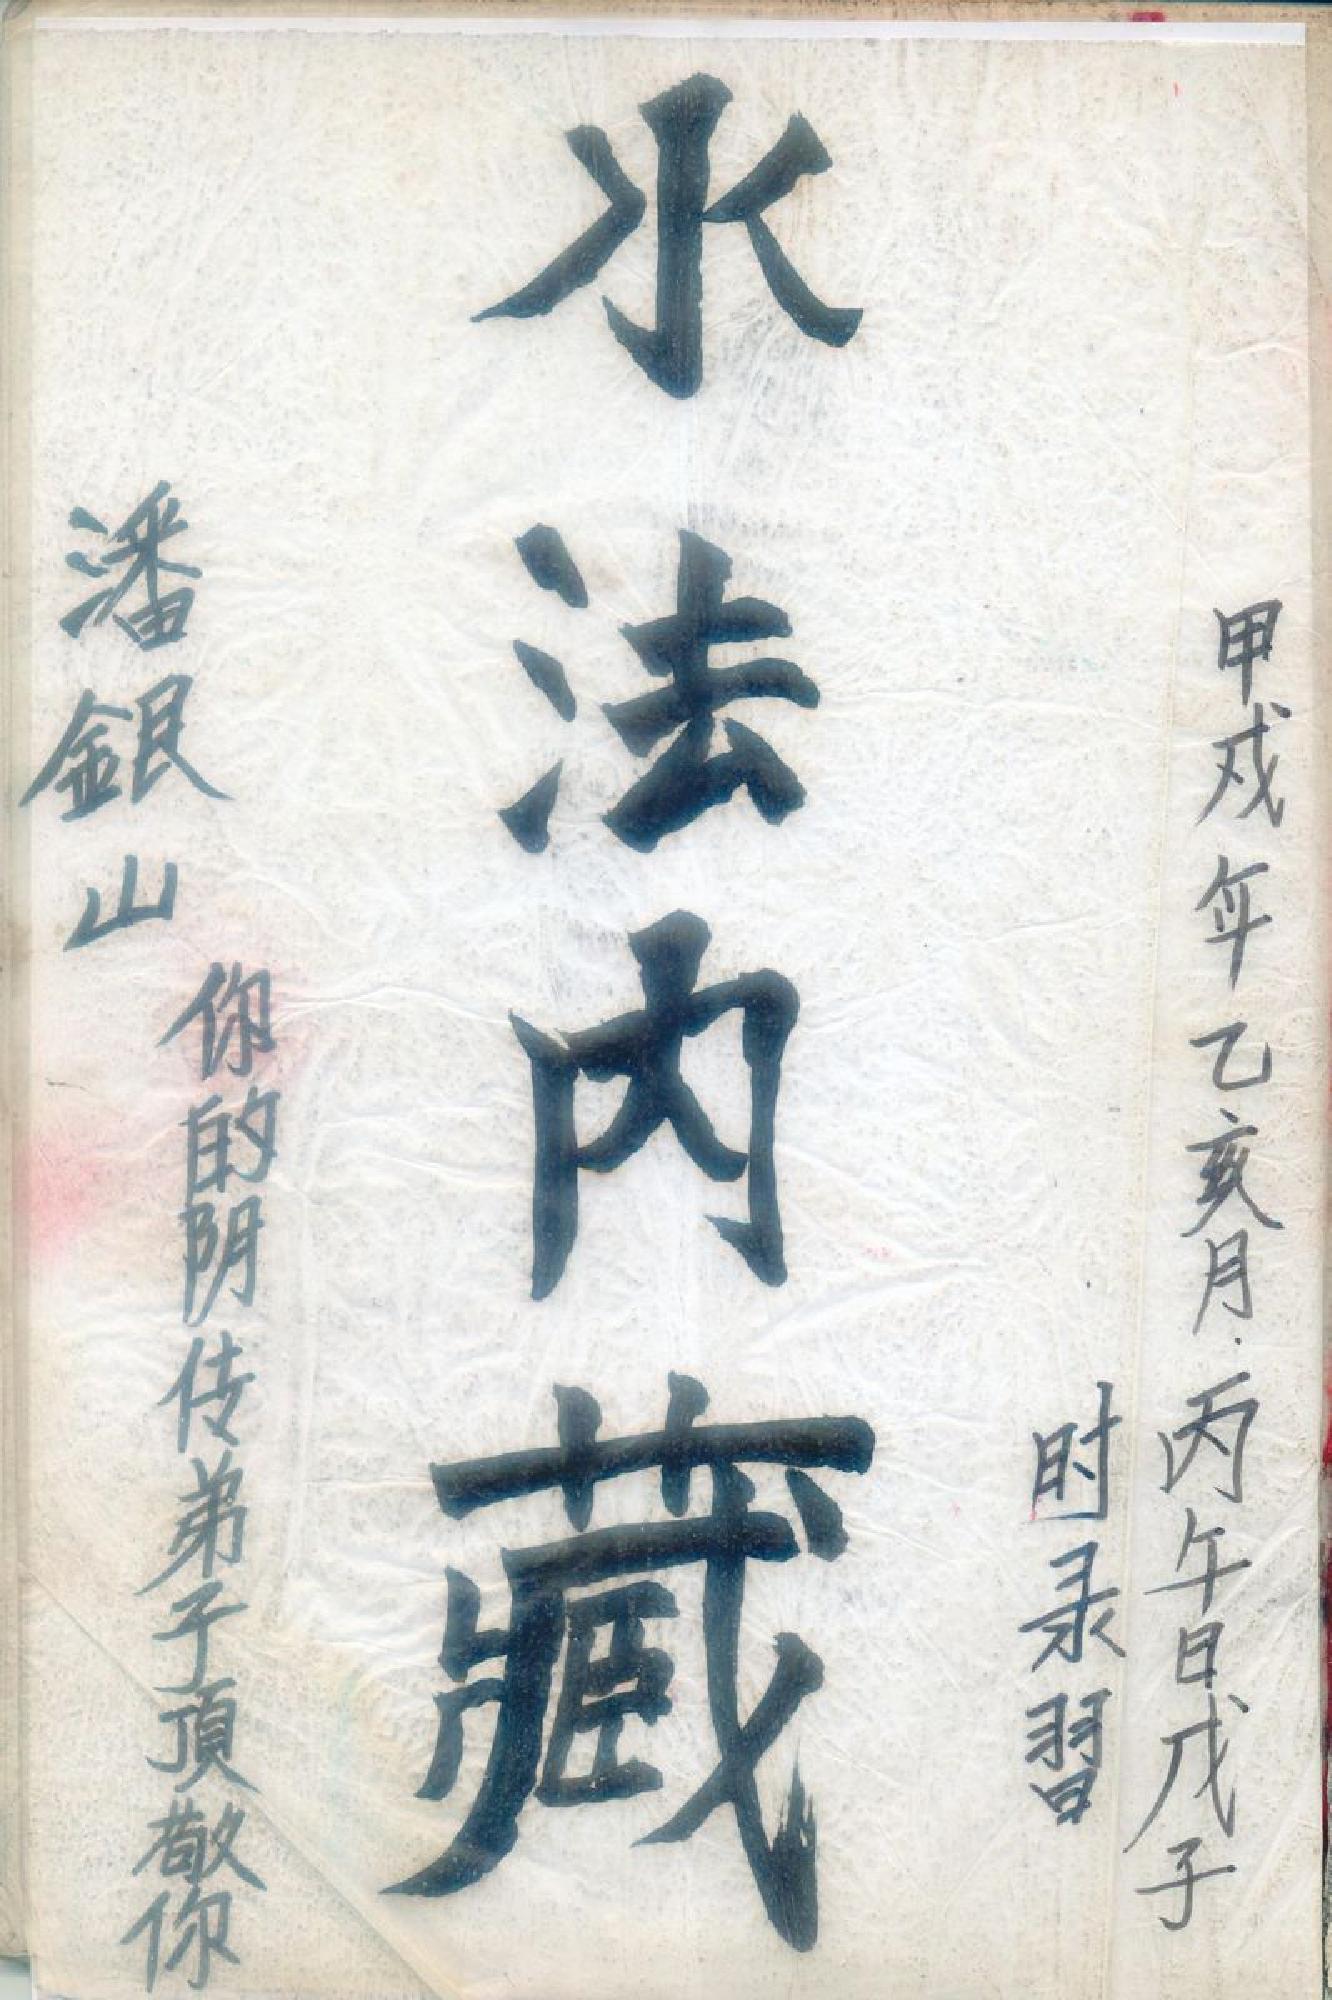 甲戍年乙亥月·丙午日戊子
时录習
水法内藏
潘銀山
你的阴传弟子頂敬你